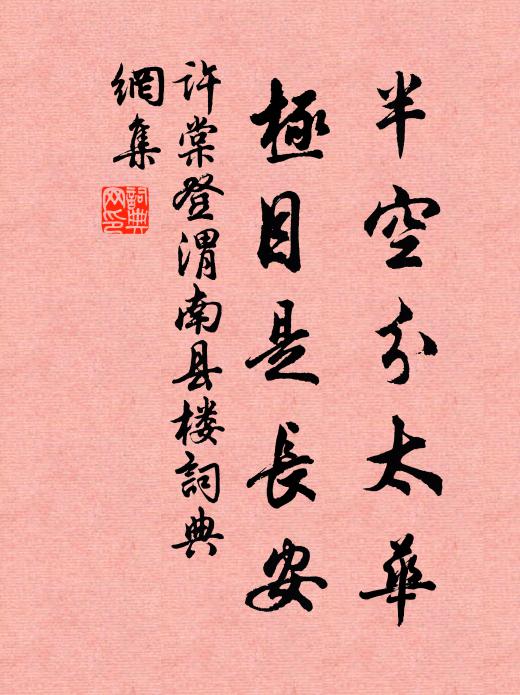 半空分太華
極目是長安
許棠登渭南县楼詞典
網集
詞典
网印